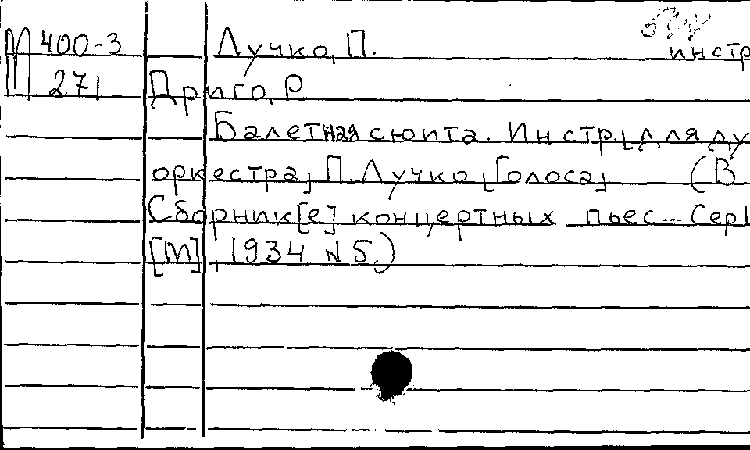 М 400-3 Лучко, П.
инстр
271 Дриго, Р
Балетная сюита. Инстр[.] для ду
оркестра, П. Лучко, [Голоса, (В
Сборник[е] концертных пьес... Сер
[М], 1934 №5.)